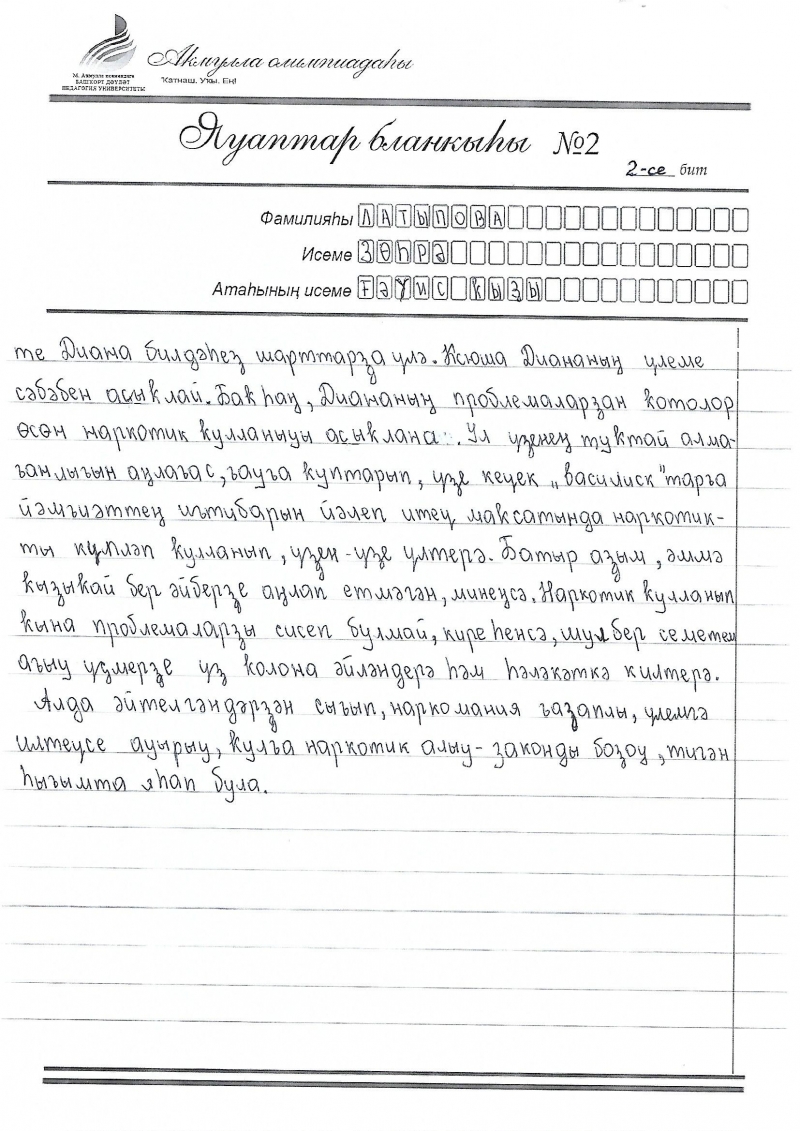 М. Акмулла исемендәге
БАШҠОРТ ДӘҮЛӘТ
ПЕДАГОГИЯ УНИВЕРСИТЕТЫ
Аҡмулла олимпиадаһы
Ҡатнаш. Уҡы. Еңе
Яуаптар бланкыһы №2
2-се бит
Фамилияһы ЛАТЫПОВА
Исеме ЗӨҺРӘ
Атаһының исеме ҒӘЙНИС ҠЫҘЫ
те Диана билдәһеҙ шарттарҙа үлә. Ксюша Диананың үлеме
сәбәбен асыҡлай. Баҡһаң, Диананың проблемаларҙан ҡотолор
өсөн наркотик ҡулланыуы асыҡлана. Ул үҙенең туҡтай алма-
ғанлығын аңлағас, ҡуптарып, үҙе кеүек „василиск"тарға
йәмғиәттең иғтибарын йәлеп итеү маҡсатында наркотик-
ты күпләп ҡулланып, үҙен-үҙе үлтерә. Батыр аҙым, әммә
ҡыҙыҡай бер әйберҙе аңлап етмәгән, минеңсә. Наркотик ҡулланып
ҡына проблемаларҙы сисеп булмай, киреһенсә, шул бер семетем
ағыу үҫмерҙе үҙ ҡолона әйләндерә һәм һәләкәткә килтерә.
Алда әйтелгәндәрҙән сығып, наркомания ғазаплы, үлемгә
илтеүсе ауырыу, ҡулға наркотик алыу- законды боҙоу, тигән
һығымта яһап була.